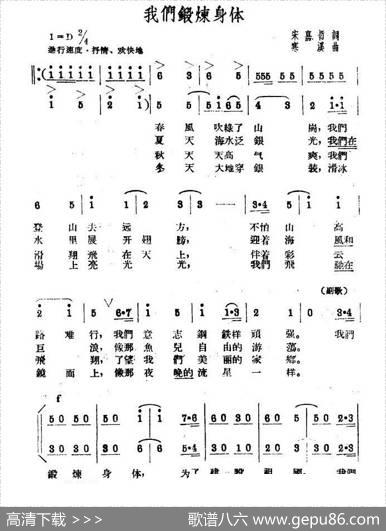 我們鍛煉身体
1=D 2/4
宋嘉哲 詞
寒溪 曲
進行速度·抒情、欢快地
春風吹綠了山崗，我們
夏天海水泛銀光，我們在
秋天天高气爽，我們
冬天大地穿銀裝，滑冰
登山去远方，不怕山高
水里展开翅膀，迎着海風和
滑翔飛在天上，伴着彩云
場上亮光光，我們飛馳在
（副歌）
路难行，我們意志鋼鉄样頑强。我們
巨浪，像那魚兒自由的游蕩。
飛翔，了望我們美丽的家鄉。
鏡面上，像那夜晚的流星一样。
f
鍛煉身体，为了建設祖國，我們
高清下载 >>>
歌谱八六 www.gepu86.com